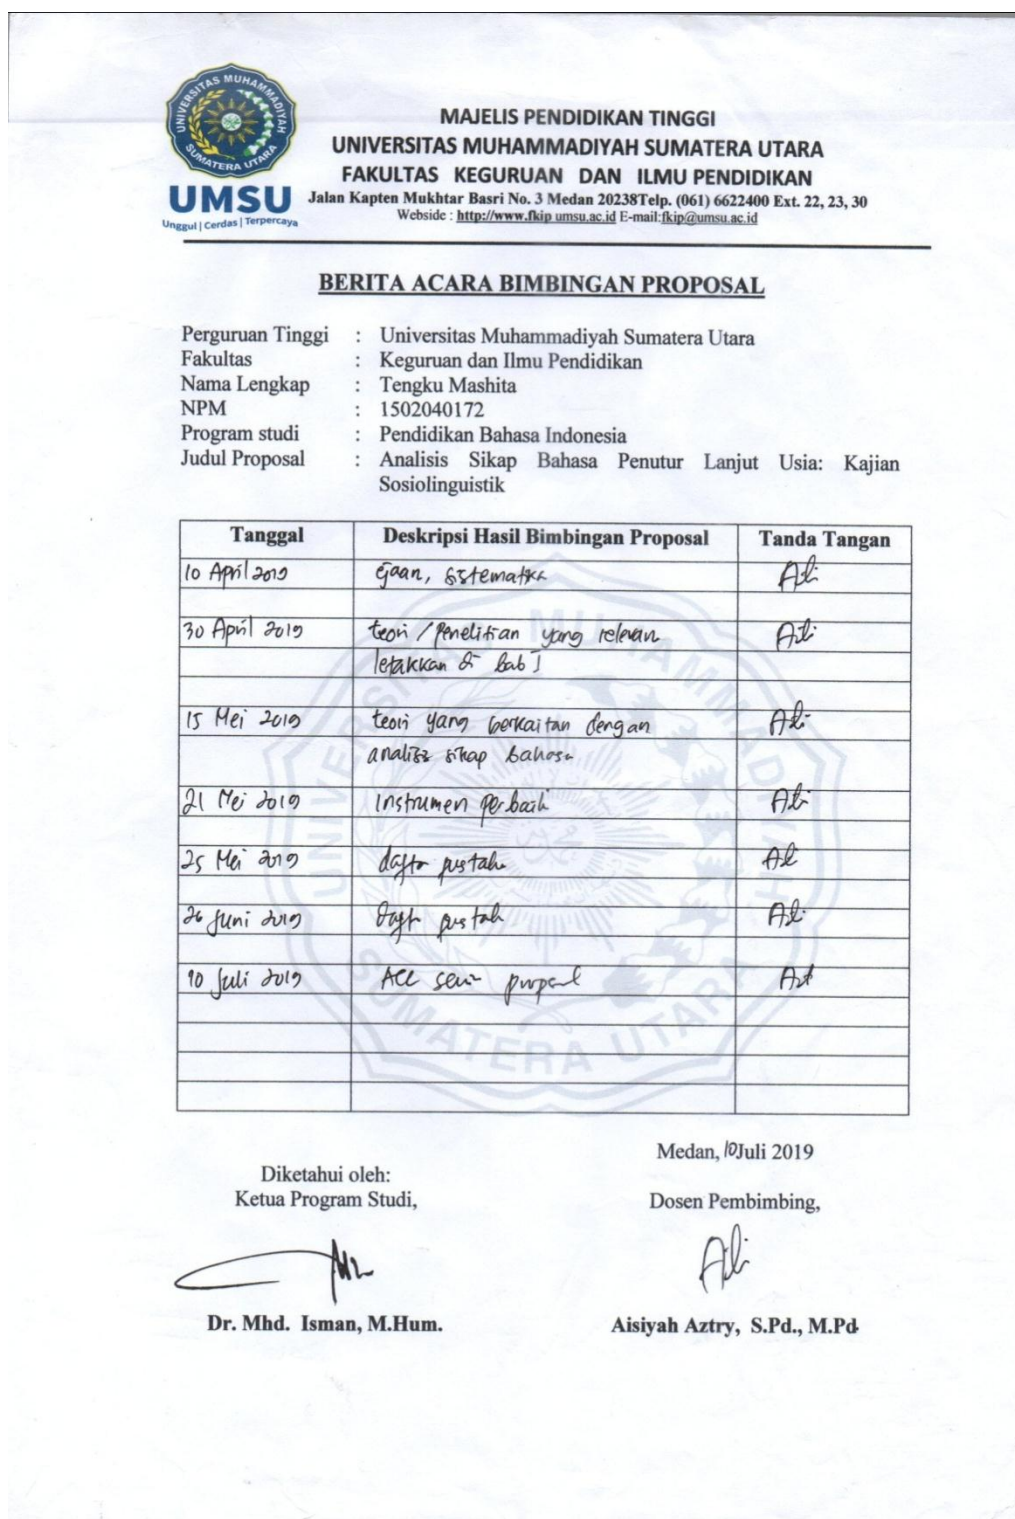 UNIVERSITAS MUHAMMADIYAH
SUMATERA UTARA
UMSU
Unggul | Cerdas | Terpercaya
MAJELIS PENDIDIKAN TINGGI
UNIVERSITAS MUHAMMADIYAH SUMATERA UTARA
FAKULTAS KEGURUAN DAN ILMU PENDIDIKAN
Jalan Kapten Mukhtar Basri No. 3 Medan 20238Telp. (061) 6622400 Ext. 22, 23, 30
Webside : http://www.fkip umsu.ac.id E-mail:fkip@umsu.ac.id
BERITA ACARA BIMBINGAN PROPOSAL
Perguruan Tinggi : Universitas Muhammadiyah Sumatera Utara
Fakultas : Keguruan dan Ilmu Pendidikan
Nama Lengkap : Tengku Mashita
NPM : 1502040172
Program studi : Pendidikan Bahasa Indonesia
Judul Proposal : Analisis Sikap Bahasa Penutur Lanjut Usia: Kajian
Sosiolinguistik
Tanggal Deskripsi Hasil Bimbingan Proposal Tanda Tangan
10 April 2019 ejaan, sistematika
30 April 2019 teori / penelitian yang relevan
letakkan di bab I
15 Mei 2019 teori yang berkaitan dengan
analisis sikap bahasa
21 Mei 2019 Instrumen perbaiki
25 Mei 2019 daftar pustaka
26 Juni 2019 daftar pustaka
10 Juli 2019 ACC
UNIVERSITAS MUHAMMADIYAH
SUMATERA UTARA
Medan, 10 Juli 2019
Diketahui oleh:
Ketua Program Studi,
Dosen Pembimbing,
Dr. Mhd. Isman, M.Hum.
Aisiyah Aztry, S.Pd., M.Pd